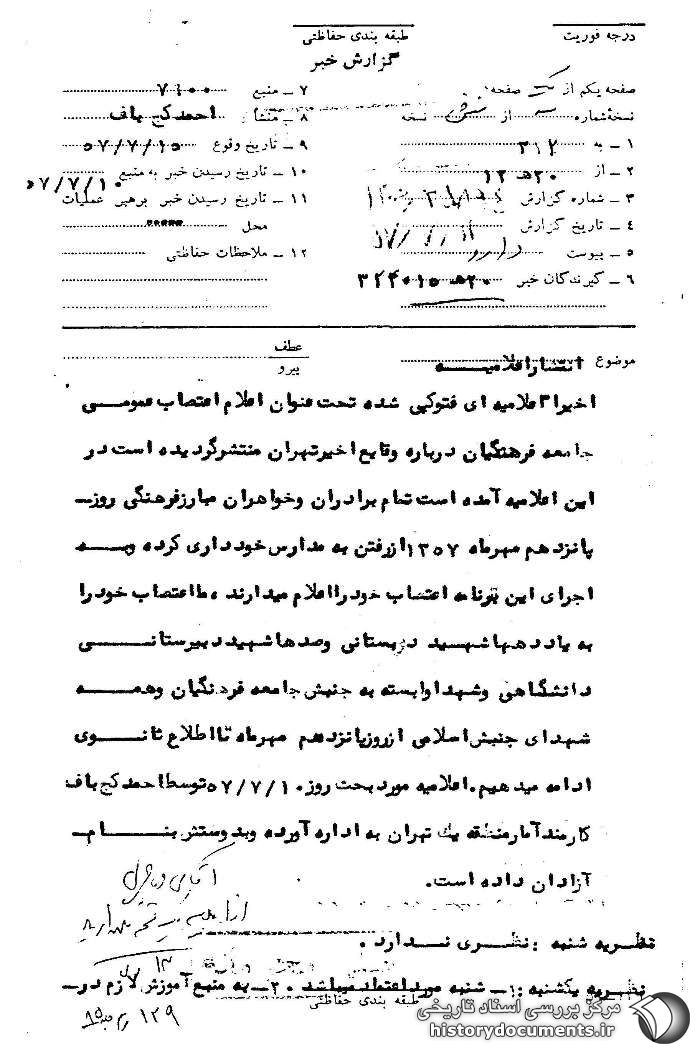 درجه فوریت
طبقه بندی حفاظتی
گزارش خبر
صفحه یکم از یک صفحه
نسخه شماره از نسخه
۱ – به ۳۱۲
۲ – از ۲۰ه‍ ۱۲
۳ – شماره گزارش
۴ – تاریخ گزارش
۵ – پیوست ندارد
۶ – گیرندگان خبر ۲۰ه‍ ۱۵
۷ – منبع ۷۱۰۰
۸ – منشاء احمد کج باف
۹ – تاریخ وقوع ۵۷/۷/۱۵
۱۰ – تاریخ رسیدن خبر به منبع ۵۷/۷/۱۰
۱۱ – تاریخ رسیدن خبر برهبر عملیات
محل
۱۲ – ملاحظات حفاظتی
موضوع انتشار اعلامیه
عطف
پیرو
اخیرا اعلامیه ای فتوکپی شده تحت عنوان اعلام اعتصاب عمومی
جامعه فرهنگیان درباره وقایع اخیر تهران منتشر گردیده است در
این اعلامیه آمده است تمام برادران وخواهران مبارز فرهنگی روز
پانزدهم مهرماه ۱۳۵۷ از رفتن به مدارس خودداری کرده وبه
اجرای این برنامه اعتصاب خود را اعلام میدارند ، ما اعتصاب خود را
به یاد دهها شهید دبستانی وصدها شهید دبیرستانی
دانشگاهی وشهدا وابسته به جنبش جامعه فرهنگیان وهمه
شهدای جنبش اسلامی از روز پانزدهم مهرماه تا اطلاع ثانوی
ادامه میدهیم. اعلامیه مورد بحث روز ۵۷/۷/۱۰ توسط احمد کج باف
کارمند آمار منطقه یک تهران به اداره آورده وبدوستش بنام
آزادان داده است.
نظریه شنبه : نظری ندارد .
نظریه یکشنبه : ۱– شنبه مورد اعتماد میباشد ۲– به منبع آموزش لازم در
طبقه بندی حفاظتی
مرکز بررسی اسناد تاریخی
historydocuments.ir